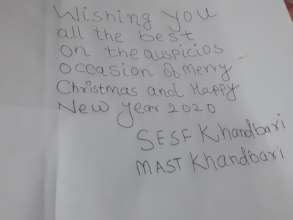 Wishing you
all the best
on the auspicios
occasion of Merry
Christmas and Happy
New year 2020
SESF Khandbari
MAST Khandbari